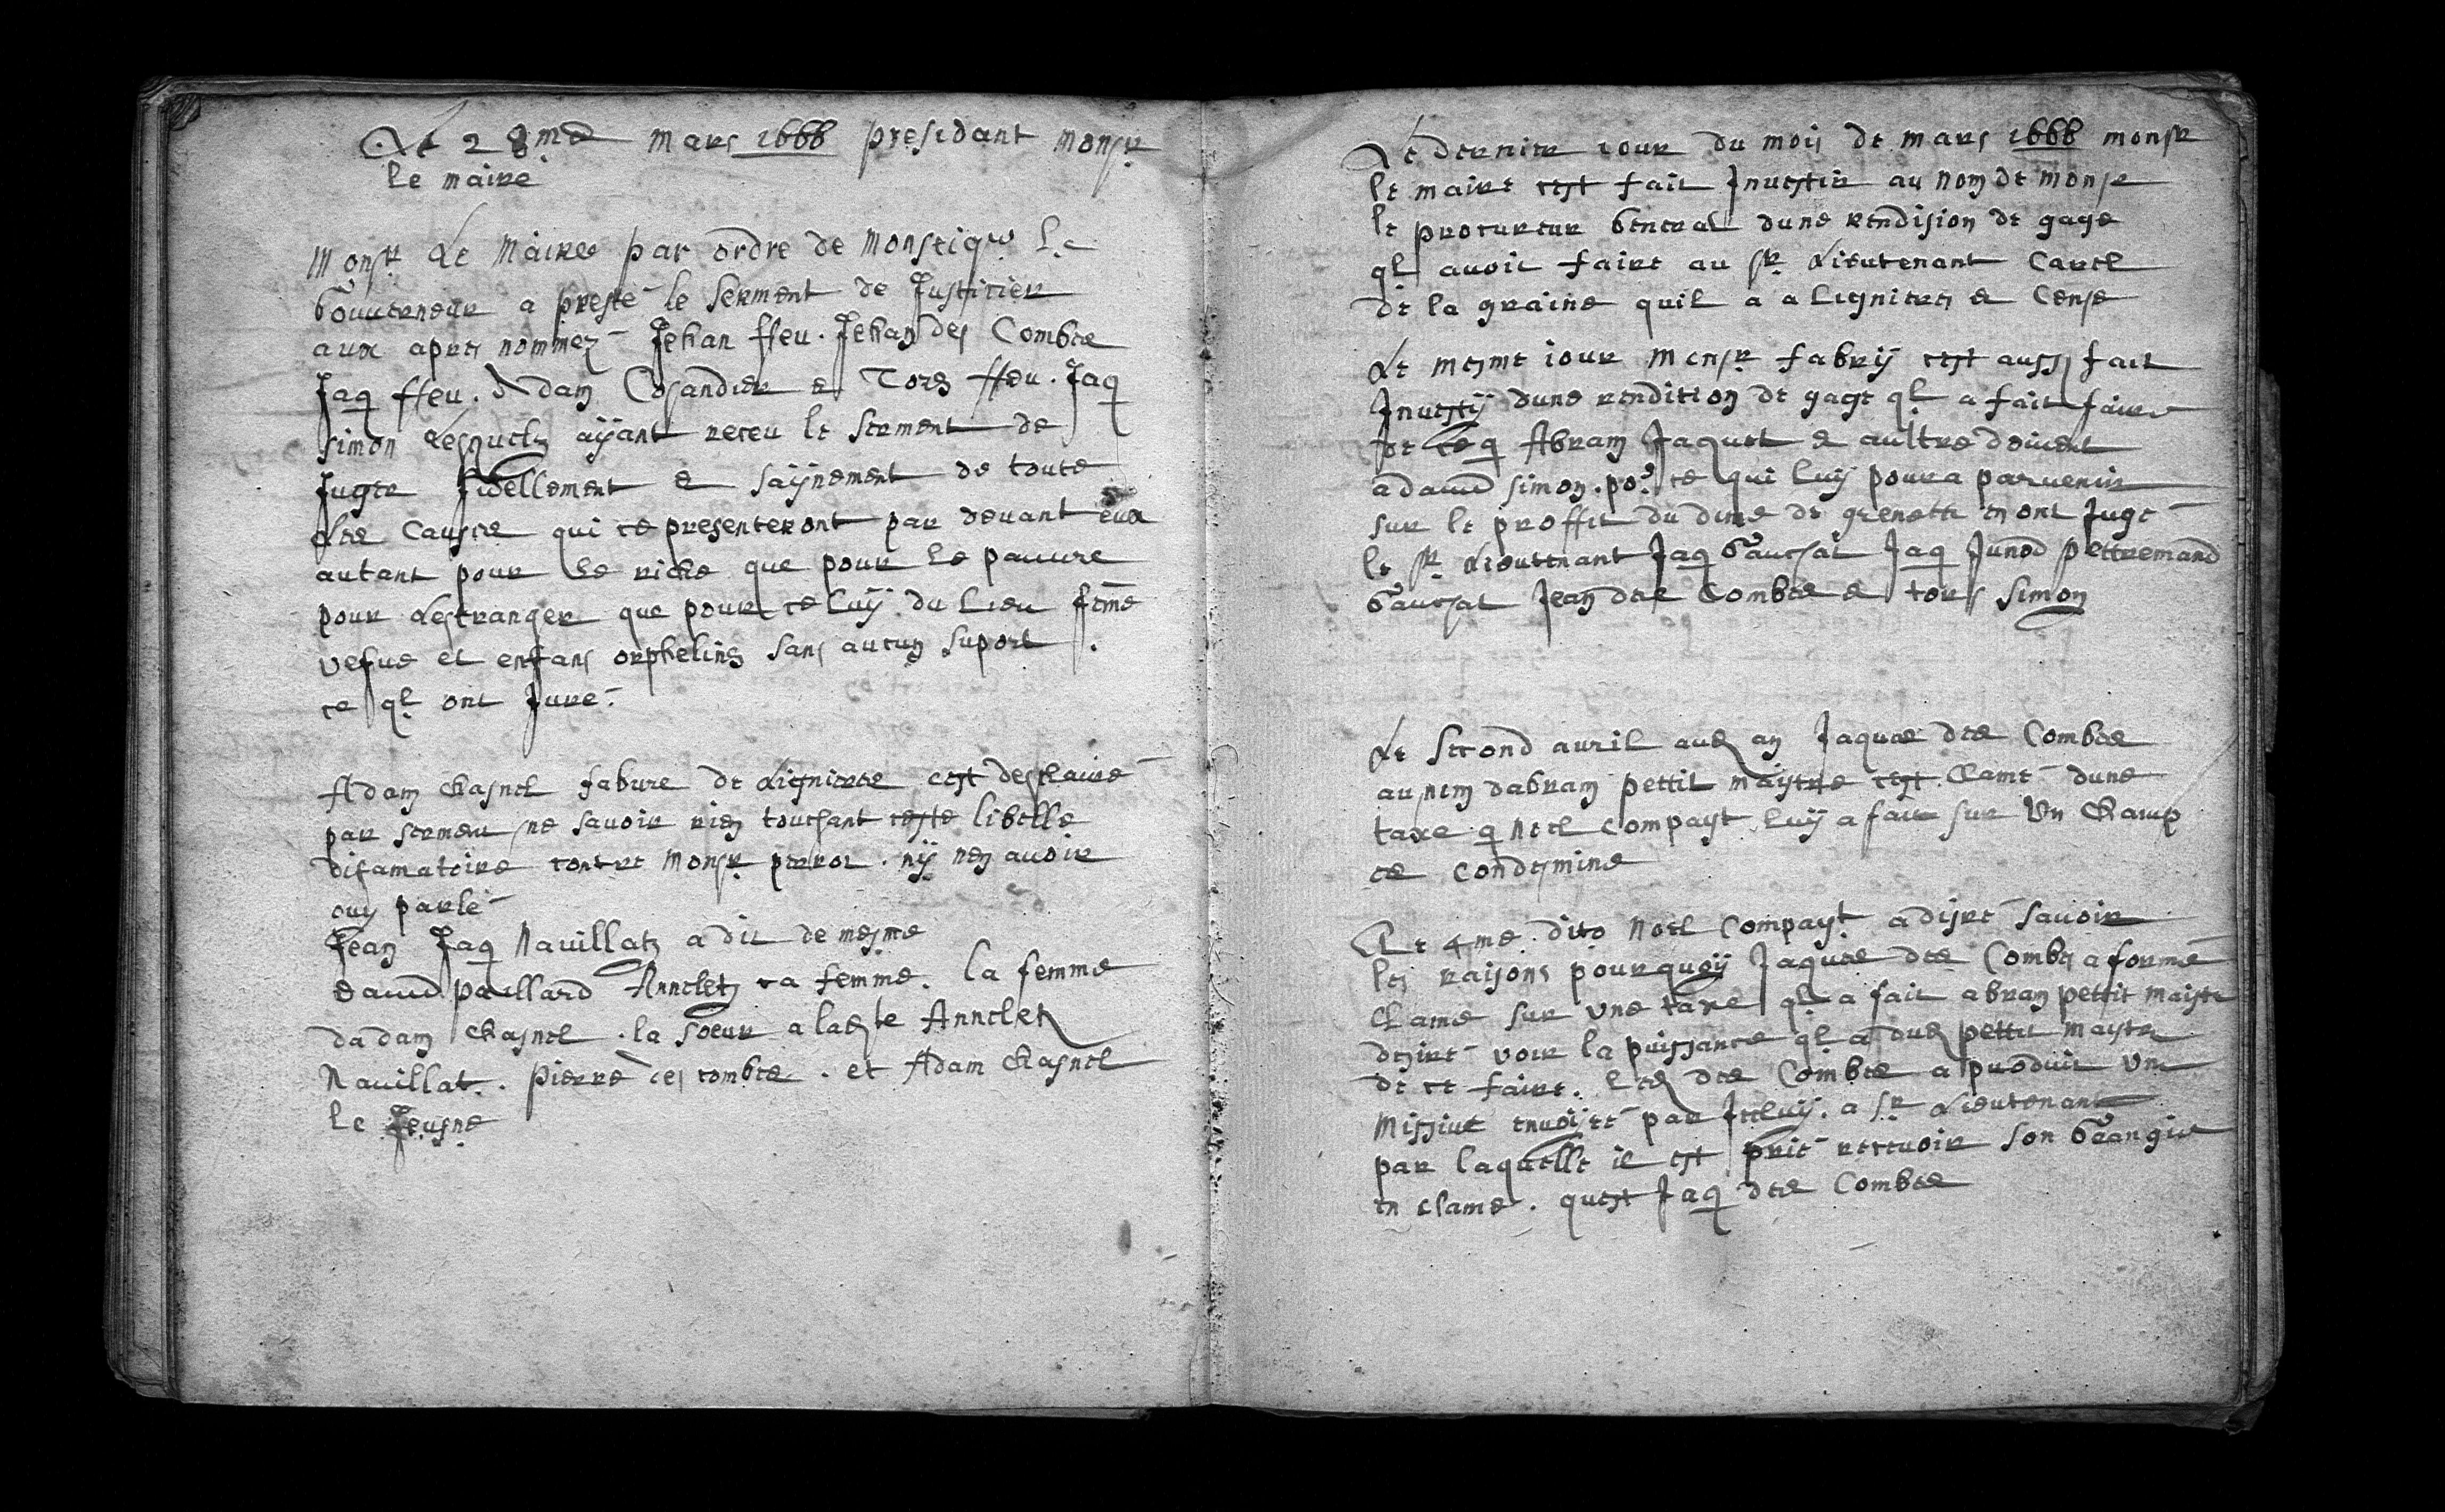 Le 28.me mars 1668 presidant monsr
le maire
Monsr Le Maire par ordre de Monseigr Le
Gouuerneur a presté le serment de Justicier
aux apres nommez Jehan ffeu. Jehan des Combes
Jaq ffeu. Adam Cosandier et Tores ffeu. Jaq
simon Lesquels aÿant receu le serment de
Juger fidellement et saÿnement de toute
Les Causes qui ce presenteront par deuant eux
autant pour le riche que pour le pauure
pour Lestranger que pour celuÿ du Lieu feme
vefue et enfans orphelins sans aucun suport .
ce ql ont Juré.
Adam Chasnel fabure de Lignieres cest desclairé
par sermen ne sauoir rien touchant ceste libelle
difamatoire contre monsr perrot . nÿ nen auoir
ouy parlé
Jean Jaq Nauillatz a dit de mesme
dauid paillard Anneletz ca femme. la femme
dadam Chasnel . la soeur a lade Annelet
Nauillat . pierre des combes . et Adam Chasnel
le Jeusne
Le dernier iour du mois de mars 1668 monsr
le maire cest fait Jnuestir au nom de monsr
le procureur General dune rendision de gage
ql auoit faire au sr Lieutenant Carel
de la graine quil a a Lignieres et Cense
Le mesme iour Monsr fabrÿ cest aussy fait
Jnuestÿ dune rendition de gage ql a fait faire
de ce q Abram Jaquet et aultre doiuent
a dauid simon . por ce qui luÿ poura paruenir
sur le proffit du dime de grenette en ont Jugé
le sr Lieutenant Jaq Gauchat Jaq Junod pettremand
Gauchat Jean des Combes et tores simon
Le second auril aud an Jaques des Combes
au nom dabram pettit maistre cest Clamé dune
taxe q Noel Compayt luÿ a fait sur Vn Champ
es condemine
Le 4me. dito Noel Compayt a disiré sauoir
les raisons pourquoÿ Jaques des Combes a formé
Clame sur vne taxe ql a fait abram pettit maistre
desiré voir la puissance ql a dud pettit maistre
de ce faire. Led des Combes a produit vne
missiue enuoÿée par Jceluÿ. a sr Lieutenant
par laquelle il est prié receuoir son Grangier
en clame . quest Jaq des Combes